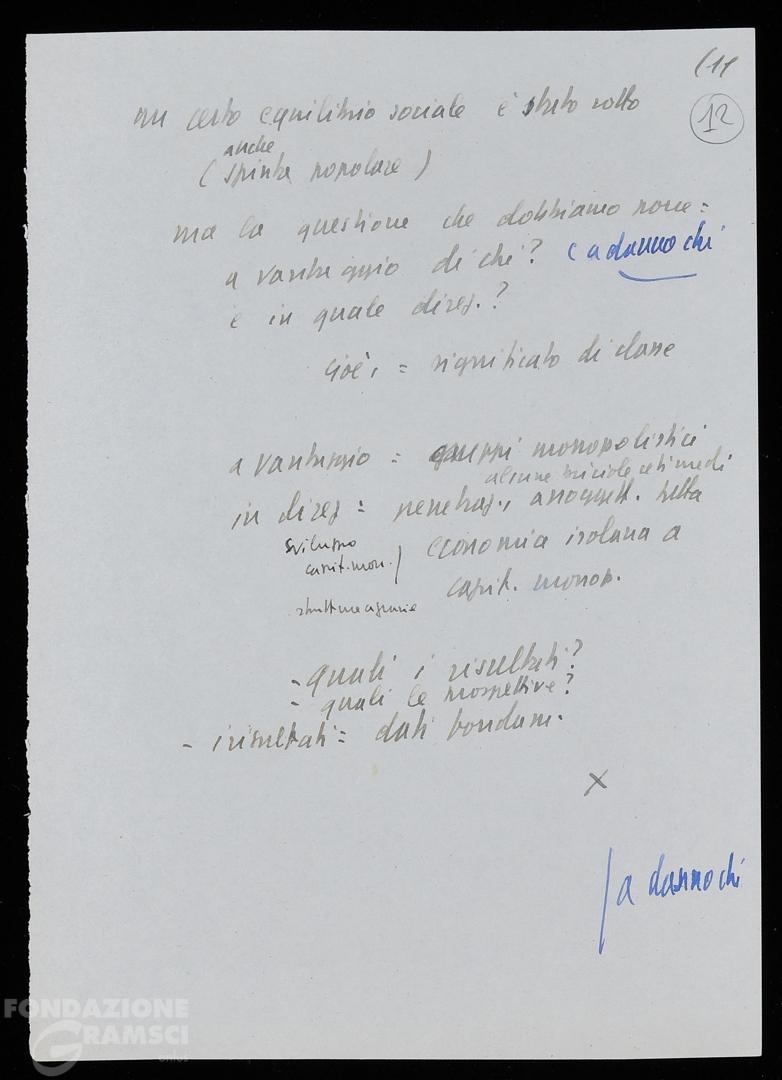 (11
12
un certo equilibrio sociale è stato rotto
anche
( spinta popolare )
ma la questione che dobbiamo porre =
a vantaggio di chi? ( a danno chi
e in quale direz.?
cioè, = significato di classe
a vantaggio = gruppi monopolistici
alcune briciole ceti medi
in direz = penetraz., assoggett. della
sviluppo
capit. mon. / economia isolana a
capit. monop.
strutture agrarie
- quali i risultati?
- quali le prospettive?
- i risultati = dati fondam.
x
/ a danno chi
FONDAZIONE
GRAMSCI
onlus